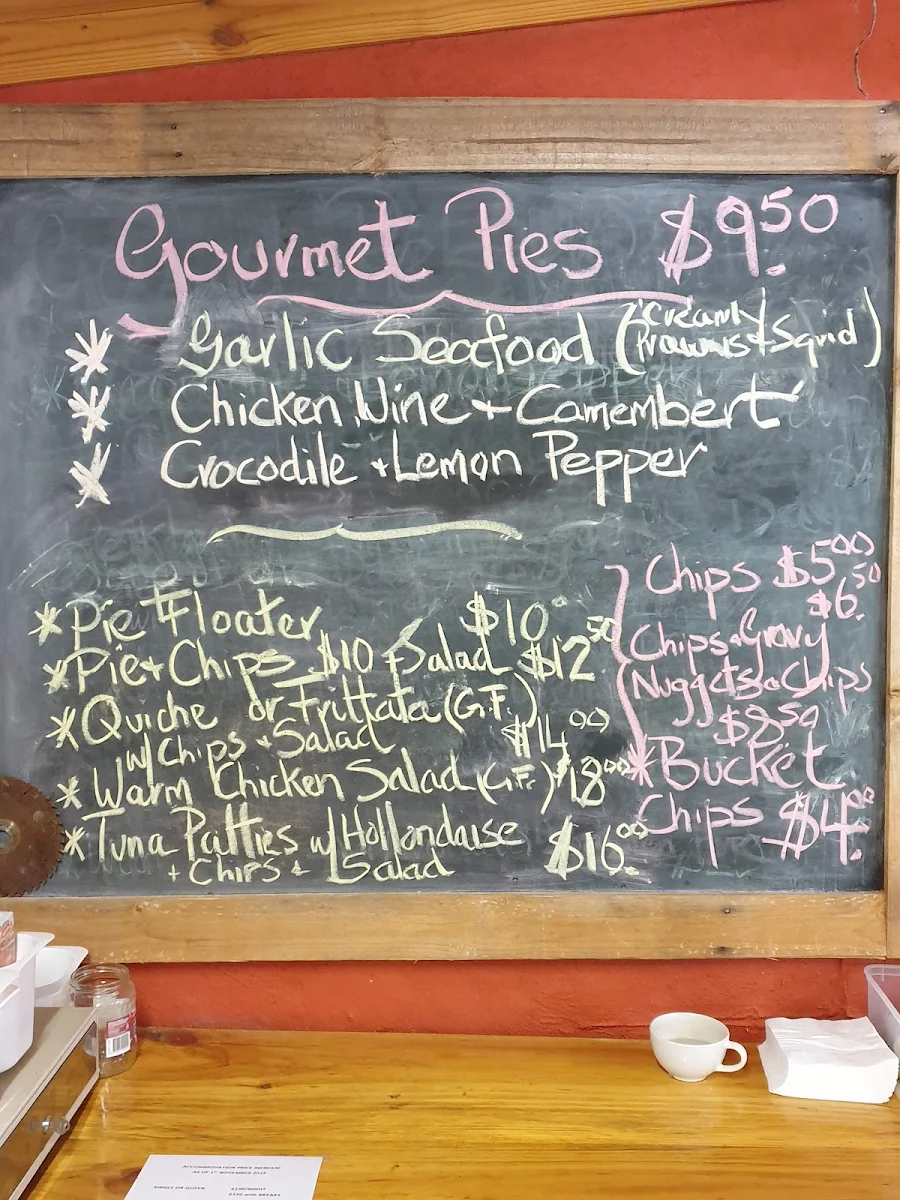 Gourmet Pies $9.50
* Garlic Seafood (Creamy Prawns + Squid)
* Chicken, Wine + Camembert
* Crocodile + Lemon Pepper
* Pie Floater $10
* Pie + Chips $10 + Salad $12.50
* Quiche or Frittata (G.F.)
w/ Chips + Salad $14.00
* Warm Chicken Salad (G.F.) $18.00
* Tuna Patties w/ Hollondaise
+ Chips + Salad $16.00
Chips $5.00
$6.50
Chips + Gravy
Nuggets + Chips
$8.50
* Bucket
Chips $4.00
ACCOMMODATION PRICE INCREASE